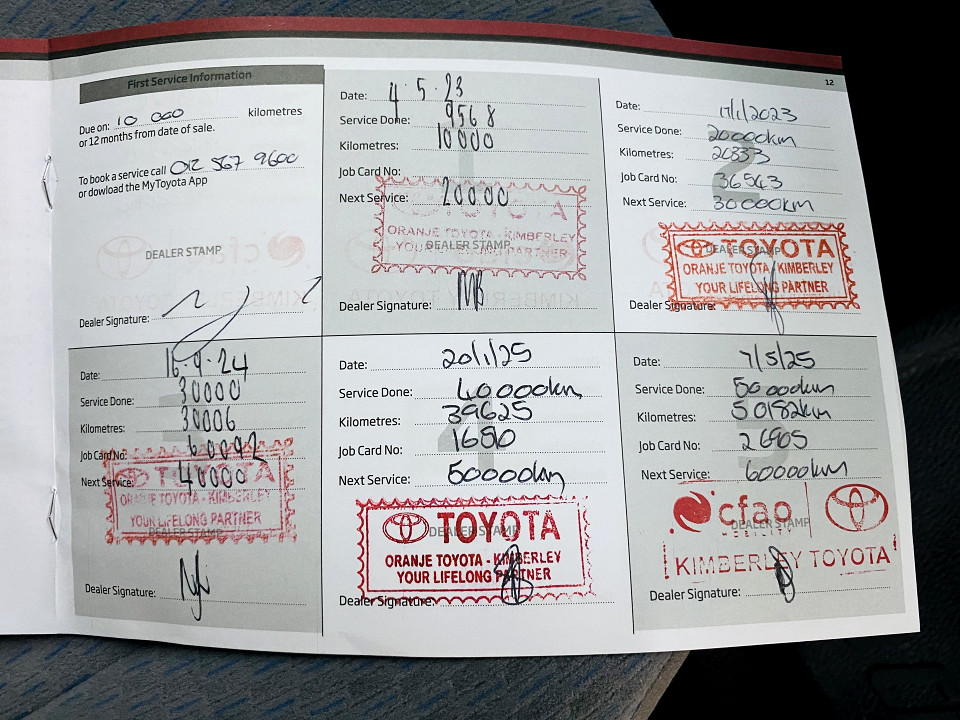 12
First Service Information
Due on: 10 000 kilometres
or 12 months from date of sale.
To book a service call 012 367 9600
or dowload the MyToyota App
DEALER STAMP
Dealer Signature:
Date: 4.5.23
Service Done: 9568
Kilometres: 10000
Job Card No:
Next Service: 20000
TOYOTA
ORANJE TOYOTA - KIMBERLEY
YOUR LIFELONG PARTNER
DEALER STAMP
Dealer Signature:
Date: 17/1/2023
Service Done: 20000km
Kilometres: 20333
Job Card No: 36543
Next Service: 30000km
DEALER STAMP
TOYOTA
ORANJE TOYOTA - KIMBERLEY
YOUR LIFELONG PARTNER
Dealer Signature:
Date: 16.9.24
Service Done: 30000
Kilometres: 30006
Job Card No: 60092
Next Service: 40000
TOYOTA
ORANJE TOYOTA - KIMBERLEY
YOUR LIFELONG PARTNER
DEALER STAMP
Dealer Signature:
Date: 20/1/25
Service Done: 40000km
Kilometres: 39625
Job Card No: 1650
Next Service: 50000km
DEALER STAMP
TOYOTA
ORANJE TOYOTA - KIMBERLEY
YOUR LIFELONG PARTNER
Dealer Signature:
Date: 7/5/25
Service Done: 50000km
Kilometres: 50182km
Job Card No:
Next Service: 60000km
cfao
MOBILITY
DEALER STAMP
KIMBERLEY TOYOTA
Dealer Signature: